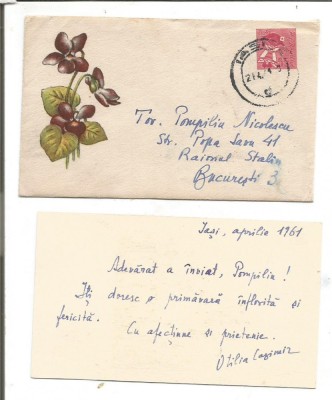 IAȘI
21.4.
Tov. Pompiliu Nicolescu
Str. Popa Savu 41
Raionul Stalin
București 3
Iași, aprilie 1961
Adevărat a înviat, Pompiliu!
Îți doresc o primăvară înflorită și
fericită.
Cu afecțiune și prietenie.
Otilia Cazimir